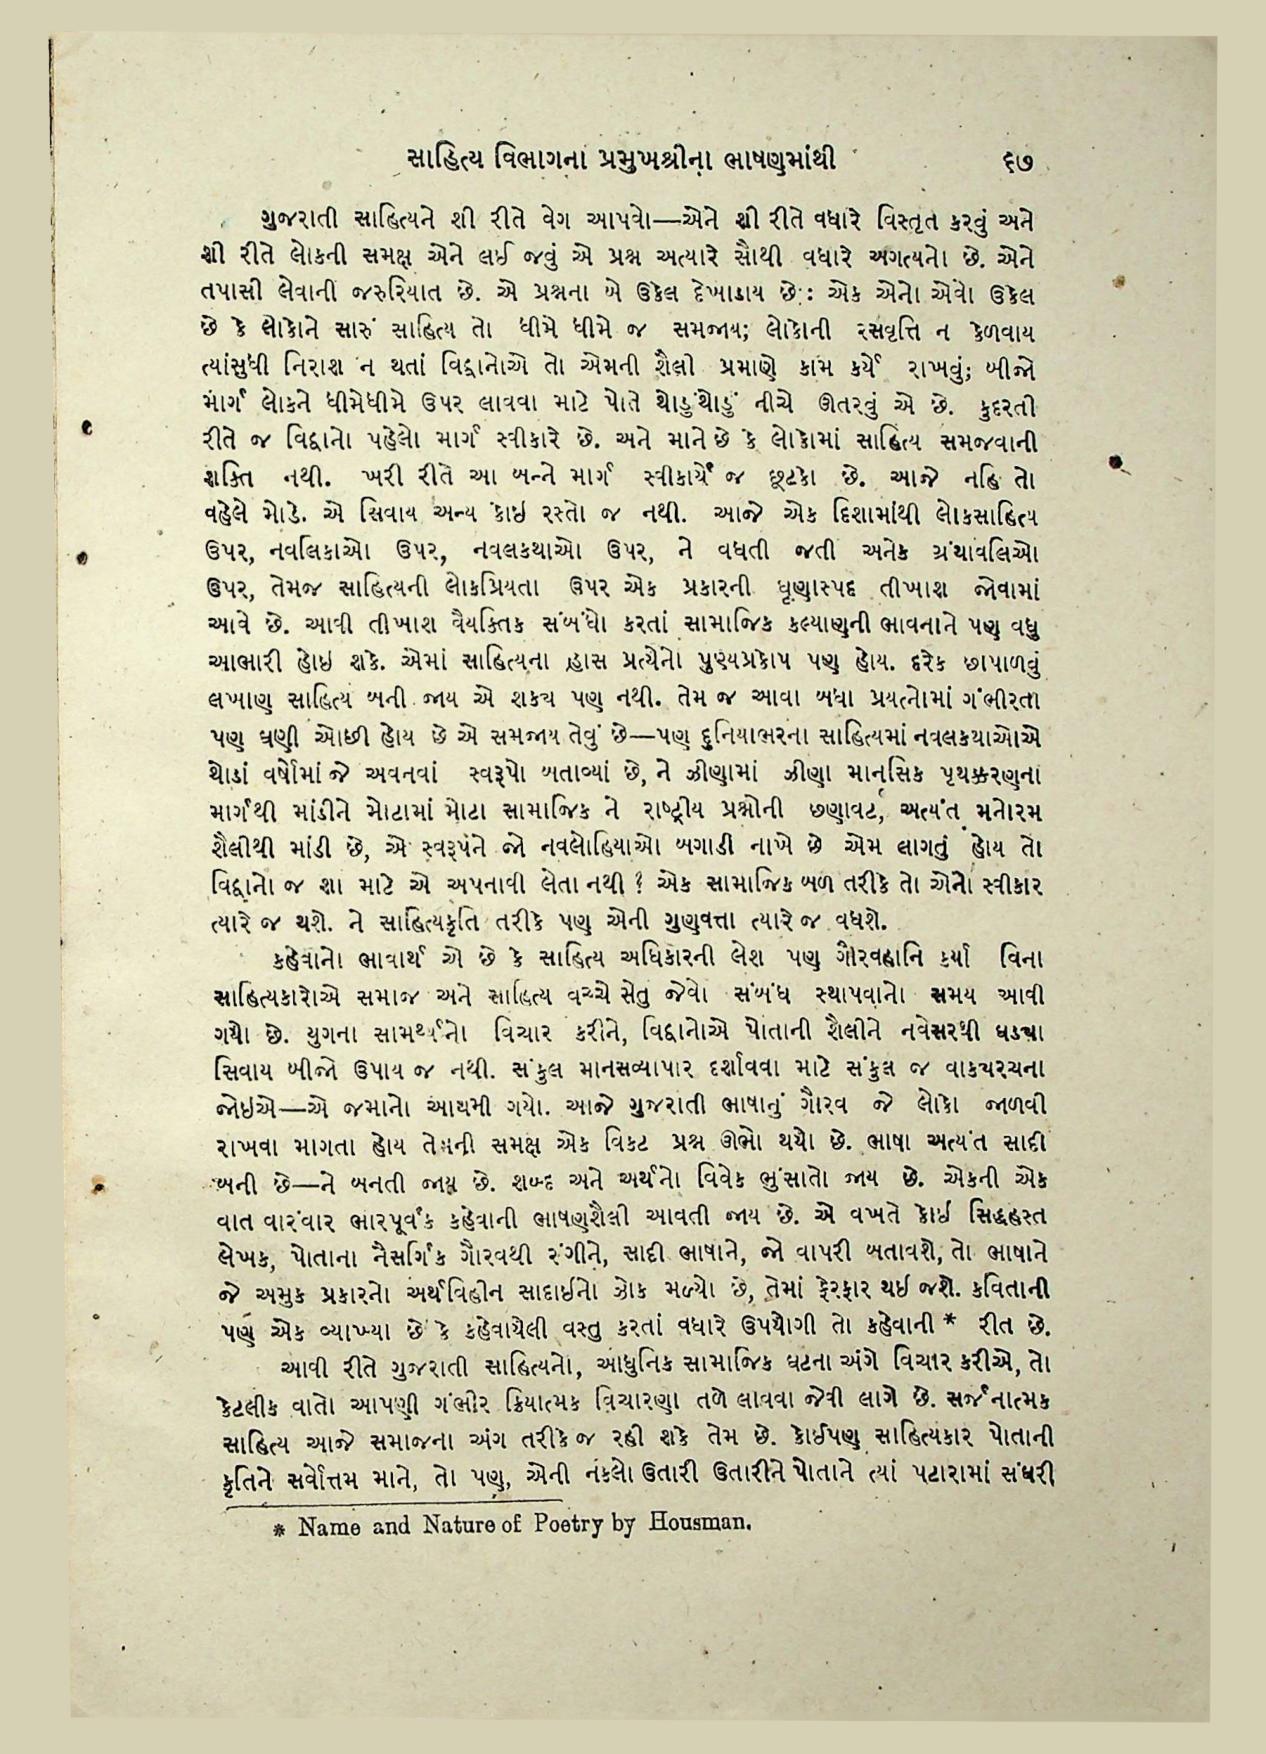 સાહિત્ય વિભાગના પ્રમુખશ્રીના ભાષણમાંથી ૬૭
ગુજરાતી સાહિત્યને શી રીતે વેગ આપવો—એને શી રીતે વધારે વિસ્તૃત કરવું અને
શી રીતે લોકની સમક્ષ એને લઈ જવું એ પ્રશ્ન અત્યારે સૌથી વધારે અગત્યનો છે. એને
તપાસી લેવાની જરુરિયાત છે. એ પ્રશ્નના બે ઉકેલ દેખાડાય છે: એક એનો એવો ઉકેલ
છે કે લોકોને સારું સાહિત્ય તો ધીમે ધીમે જ સમજાય; લોકોની રસવૃત્તિ ન કેળવાય
ત્યાંસુધી નિરાશ ન થતાં વિદ્વાનોએ તો એમની શૈલી પ્રમાણે કામ કર્યે રાખવું; બીજો
માર્ગ લોકને ધીમેધીમે ઉપર લાવવા માટે પોતે થોડુંથોડું નીચે ઊતરવું એ છે. કુદરતી
રીતે જ વિદ્વાનો પહેલો માર્ગ સ્વીકારે છે. અને માને છે કે લોકોમાં સાહિત્ય સમજવાની
શક્તિ નથી. ખરી રીતે આ બન્ને માર્ગ સ્વીકાર્યે જ છૂટકો છે. આજે નહિ તો
વહેલે મોડે. એ સિવાય અન્ય કોઇ રસ્તો જ નથી. આજે એક દિશામાંથી લોકસાહિત્ય
ઉપર, નવલિકાઓ ઉપર, નવલકથાઓ ઉપર, ને વધતી જતી અનેક ગ્રંથાવલિઓ
ઉપર, તેમજ સાહિત્યની લોકપ્રિયતા ઉપર એક પ્રકારની ઘૃણાસ્પદ તીખાશ જોવામાં
આવે છે. આવી તીખાશ વૈયક્તિક સંબંધો કરતાં સામાજિક કલ્યાણની ભાવનાને પણ વધુ
આભારી હોઇ શકે. એમાં સાહિત્યના હ્રાસ પ્રત્યેનો પુણ્યપ્રકોપ પણ હોય. દરેક છાપાળવું
લખાણ સાહિત્ય બની જાય એ શક્ય પણ નથી. તેમ જ આવા બધા પ્રયત્નોમાં ગંભીરતા
પણ ઘણી ઓછી હોય છે એ સમજાય તેવું છે—પણ દુનિયાભરના સાહિત્યમાં નવલકથાઓએ
થોડાં વર્ષોમાં જે અવનવાં સ્વરૂપો બતાવ્યાં છે, ને ઝીણામાં ઝીણા માનસિક પૃથક્કરણના
માર્ગથી માંડીને મોટામાં મોટા સામાજિક ને રાષ્ટ્રીય પ્રશ્નોની છણાવટ, અત્યંત મનોરમ
શૈલીથી માંડી છે, એ સ્વરૂપને જો નવલોહિયાઓ બગાડી નાખે છે એમ લાગતું હોય તો
વિદ્વાનો જ શા માટે એ અપનાવી લેતા નથી ? એક સામાજિક બળ તરીકે તો એનો સ્વીકાર
ત્યારે જ થશે. ને સાહિત્યકૃતિ તરીકે પણ એની ગુણવત્તા ત્યારે જ વધશે.
કહેવાનો ભાવાર્થ એ છે કે સાહિત્ય અધિકારની લેશ પણ ગૌરવહાનિ કર્યા વિના
સાહિત્યકારોએ સમાજ અને સાહિત્ય વચ્ચે સેતુ જેવો સંબંધ સ્થાપવાનો સમય આવી
ગયો છે. યુગના સામર્થ્યનો વિચાર કરીને, વિદ્વાનોએ પોતાની શૈલીને નવેસરથી ઘડ્યા
સિવાય બીજો ઉપાય જ નથી. સંકુલ માનસવ્યાપાર દર્શાવવા માટે સંકુલ જ વાક્યરચના
જોઇએ—એ જમાનો આથમી ગયો. આજે ગુજરાતી ભાષાનું ગૌરવ જે લોકો જાળવી
રાખવા માગતા હોય તેમની સમક્ષ એક વિકટ પ્રશ્ન ઊભો થયો છે. ભાષા અત્યંત સાદી
બની છે—ને બનતી જાય છે. શબ્દ અને અર્થનો વિવેક ભુંસાતો જાય છે. એકની એક
વાત વારંવાર ભારપૂર્વક કહેવાની ભાષણશૈલી આવતી જાય છે. એ વખતે કોઇ સિદ્ધહસ્ત
લેખક, પોતાના નૈસર્ગિક ગૌરવથી રંગીને, સાદી ભાષાને, જો વાપરી બતાવશે, તો ભાષાને
જે અમુક પ્રકારનો અર્થવિહીન સાદાઇનો ઝોક મળ્યો છે, તેમાં ફેરફાર થઇ જશે. કવિતાની
પણ એક વ્યાખ્યા છે કે કહેવાયેલી વસ્તુ કરતાં વધારે ઉપયોગી તો કહેવાની * રીત છે.
આવી રીતે ગુજરાતી સાહિત્યનો, આધુનિક સામાજિક ઘટના અંગે વિચાર કરીએ, તો
કેટલીક વાતો આપણી ગંભીર ક્રિયાત્મક વિચારણા તળે લાવવા જેવી લાગે છે. સર્જનાત્મક
સાહિત્ય આજે સમાજના અંગ તરીકે જ રહી શકે તેમ છે. કોઈપણ સાહિત્યકાર પોતાની
કૃતિને સર્વોત્તમ માને, તો પણ, એની નકલો ઉતારી ઉતારીને પોતાને ત્યાં પટારામાં સંઘરી
* Name and Nature of Poetry by Housman.